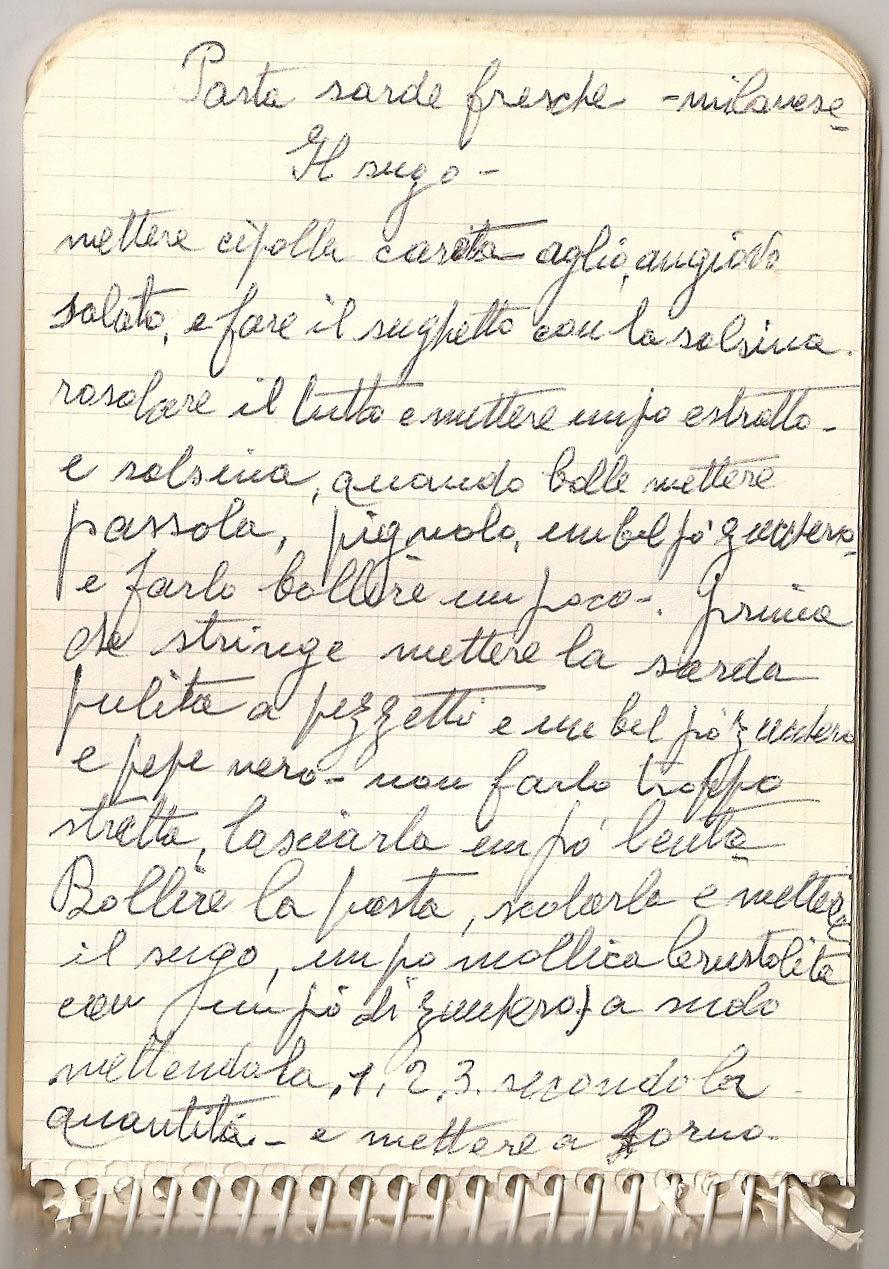 Pasta sarde fresche - milanese
Il sugo -
mettere cipolla carota aglio, angiova
salato, e fare il sughetto con la salsina.
rosolare il tutto e mettere un po estratto -
e salsina, quando bolle mettere
passola, pignolo, un bel pò zucchero
e farlo bollire un poco -. Prima
che stringe mettere la sarda
pulita a pezzetti e un bel pò zucchero
e pepe nero - non farlo troppo
stretta, lasciarla un pò lenta
Bollire la pasta, scolarla e mettere
il sugo, un po mollica brustolita
con un pò di zucchero) a suolo
mettendola, 1, 2, 3. secondo la
quantità. - e mettere a forno.